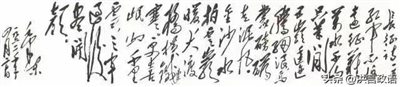 长征诗一首
红军不怕
远征难
万水千山
只等闲
五岭逶迤
腾细浪乌
蒙磅礴
走泥丸
金沙水
拍云崖
暖大渡
桥横铁
索寒更喜
岷山千里
雪三军
过后
尽开
颜
毛泽东
头条@洪言政语